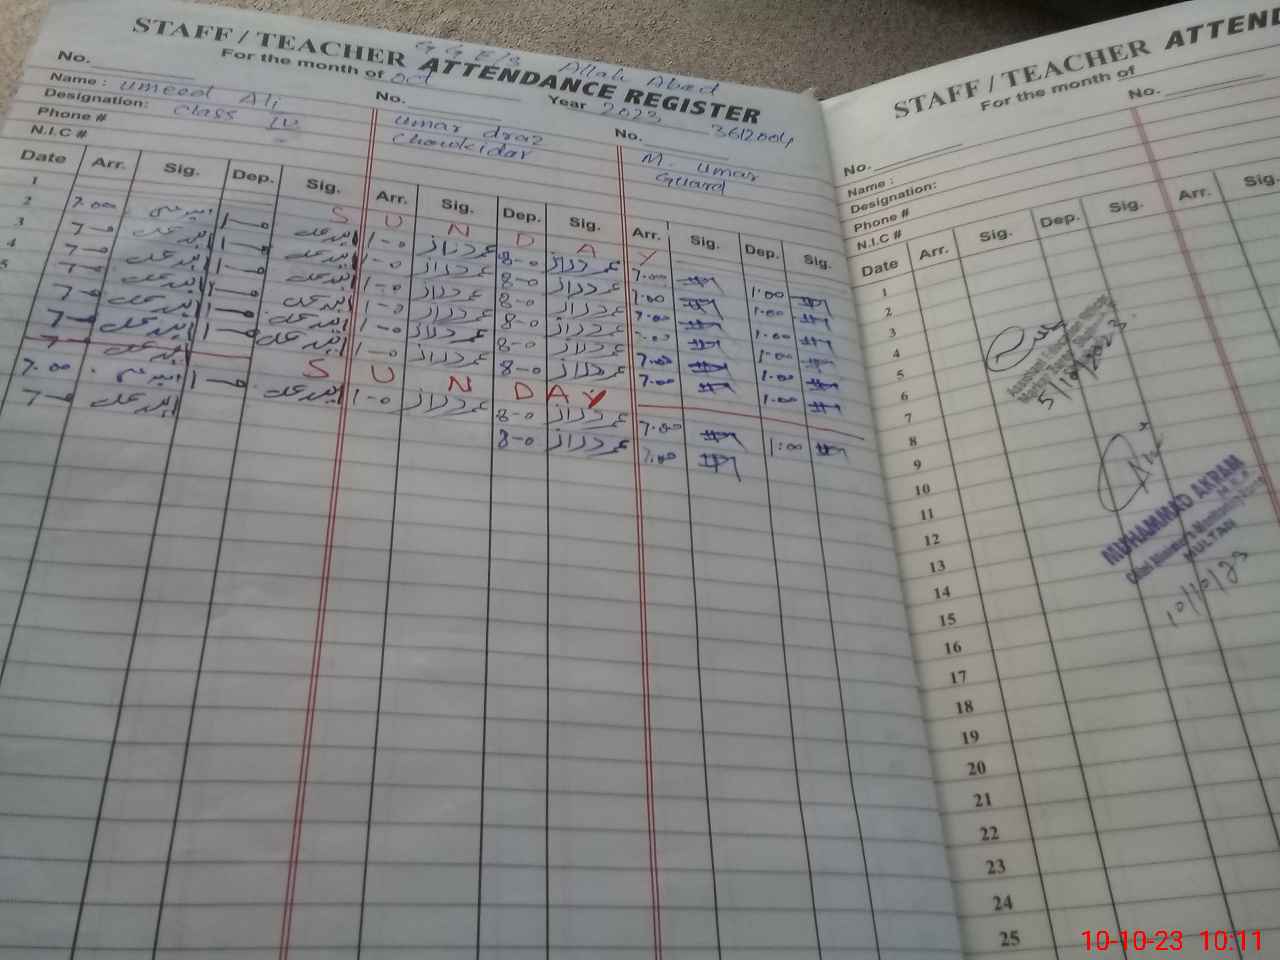 STAFF / TEACHER ATTENDANCE REGISTER
Allah Abad
For the month of Oct Year 2023 3612004
No. No. No.
Name : umeed Ali umar draz M. umar
Designation: Class IV Chowkidar Guard
Phone #
N.I.C #
Date Arr. Sig. Dep. Sig. Arr. Sig. Dep. Sig. Arr. Sig. Dep. Sig.
1 S U N D A Y
2 7.00 امید علی 1-0 امید علی 1-0 عمر دراز 8-0 عمر دراز 7.00 1.00
3 7-0 امید علی 1-0 امید علی 1-0 عمر دراز 8-0 عمر دراز 7.00 1.00
4 7-0 امید علی 1-0 امید علی 1-0 عمر دراز 8-0 عمر دراز 7.00 1.00
5 7-0 امید علی 1-0 امید علی 1-0 عمر دراز 8-0 عمر دراز 1.00
7-0 امید علی 1-0 امید علی 1-0 عمر دراز 8-0 عمر دراز 7.00 1.00
7-0 امید علی 1-0 امید علی 1-0 عمر دراز 8-0 عمر دراز 7.00 1.00
S U N D A Y
7.00 امید علی 1-0 امید علی 1-0 عمر دراز 8-0 عمر دراز 7.00 1:00
7-0 امید علی 8-0 عمر دراز 7.00
STAFF / TEACHER ATTEN
For the month of
No. No.
Name :
Designation:
Phone #
N.I.C #
Date Arr. Sig. Dep. Sig. Arr. Sig.
1
2
3
4
5
6
7
8
9
10
11
12
13
14
15
16
17
18
19
20
21
22
23
24
25
5/10/2023
MUHAMMAD AKRAM
MULTAN
10/10/23
10-10-23 10:11